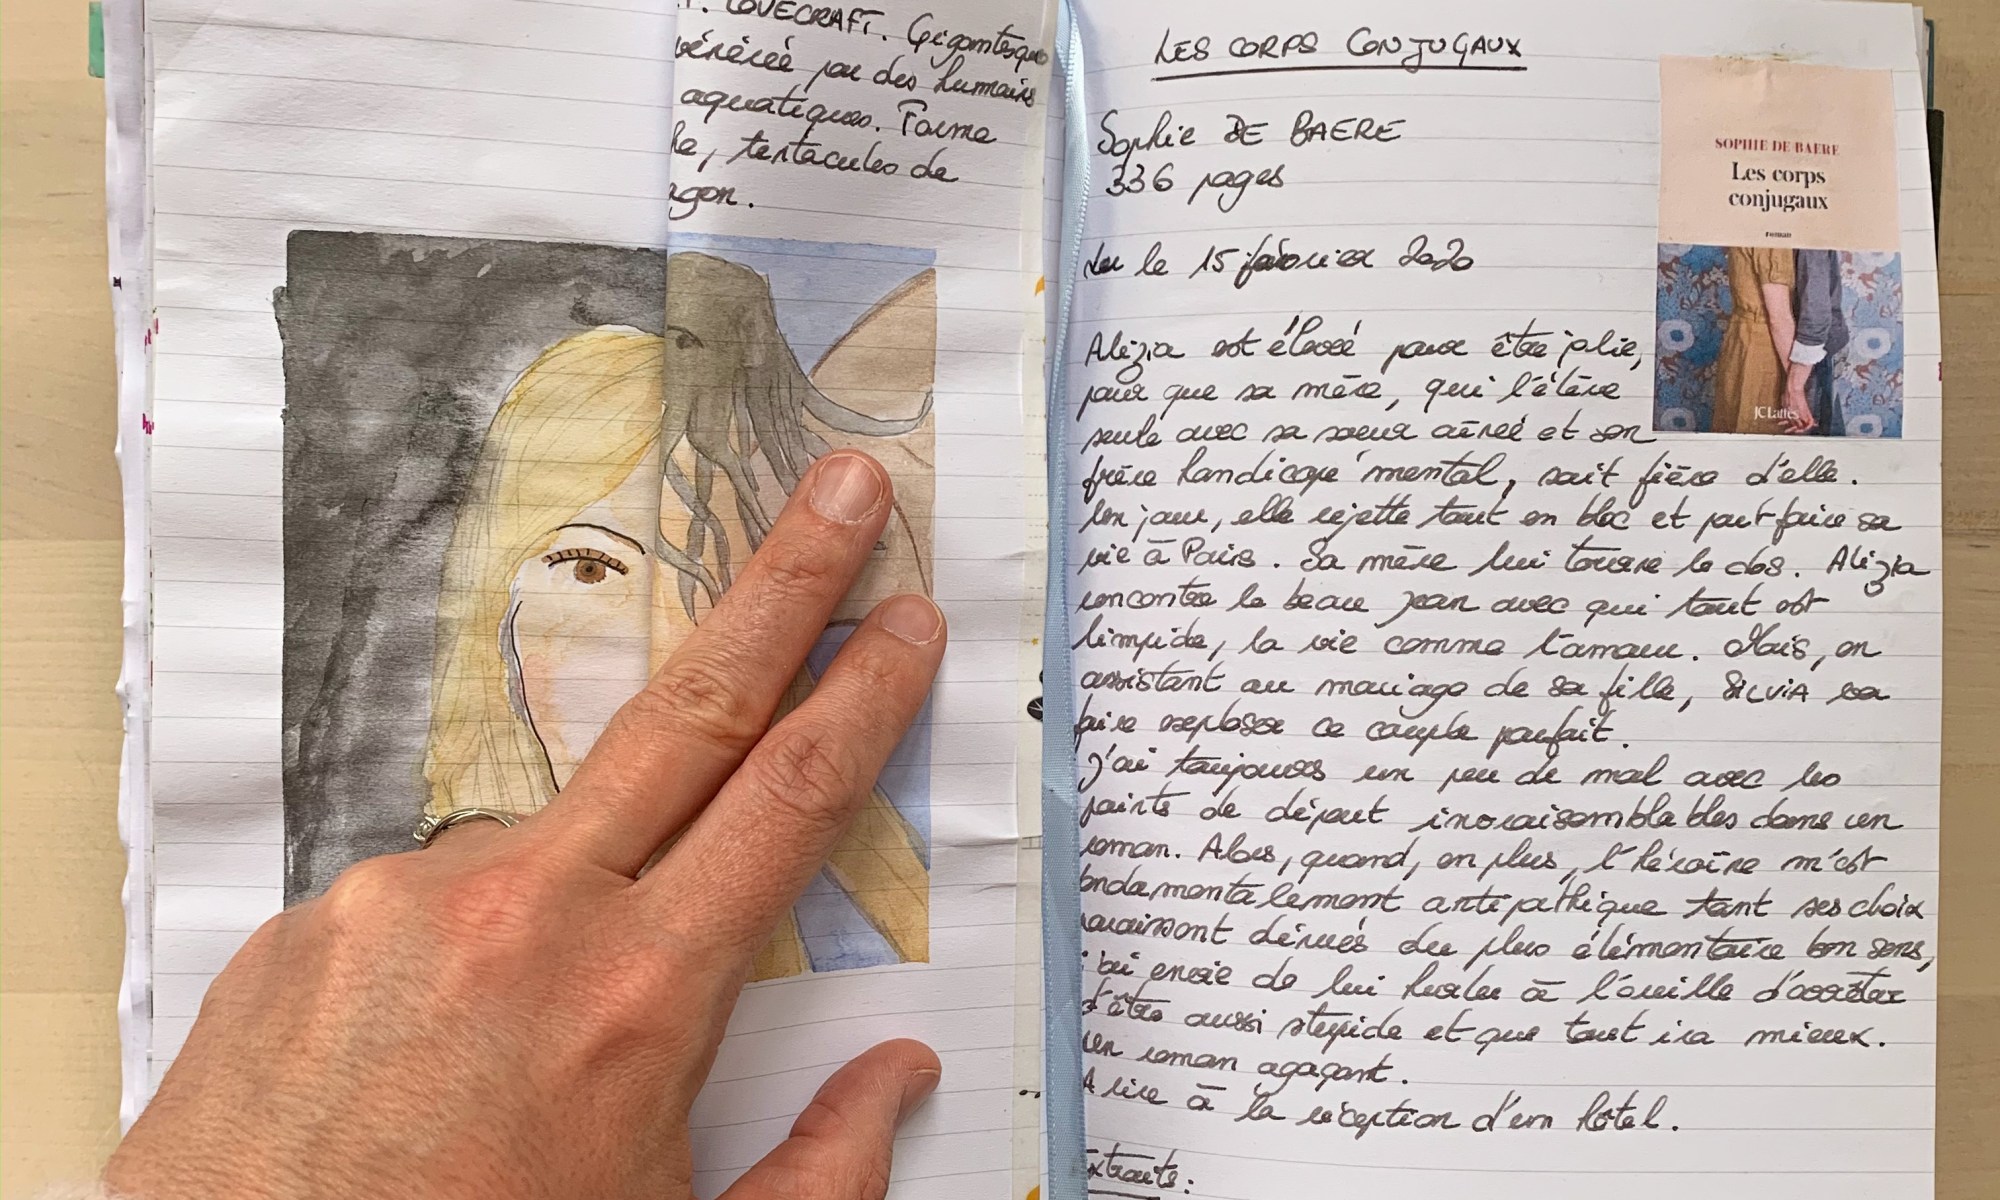 LOVECRAFT. Gigantesque
vénérée par des humains
aquatiques. Forme
tentacules de
LES CORPS CONJUGAUX
Sophie DE BAERE
336 pages
Lu le 15 février 2020
SOPHIE DE BAERE
Les corps
conjugaux
roman
JC Lattès
Alizia est élevée pour être jolie,
pour que sa mère, qui l'élève
seule avec sa soeur aînée et son
frère handicapé mental, soit fière d'elle.
Un jour, elle rejette tout en bloc et part faire sa
vie à Paris. Sa mère lui tourne le dos. Alizia
rencontre le beau Jean avec qui tout est
limpide, la vie comme l'amour. Mais, en
assistant au mariage de sa fille, SILVIA va
faire exploser ce couple parfait.
J'ai toujours un peu de mal avec les
points de départ invraisemblables dans un
roman. Alors, quand, en plus, l'héroïne m'est
fondamentalement antipathique tant ses choix
paraissent dénués du plus élémentaire bon sens,
j'ai envie de lui hurler à l'oreille d'arrêter
d'être aussi stupide et que tout ira mieux.
Un roman agaçant.
A lire à la réception d'un hôtel.
Extraits :